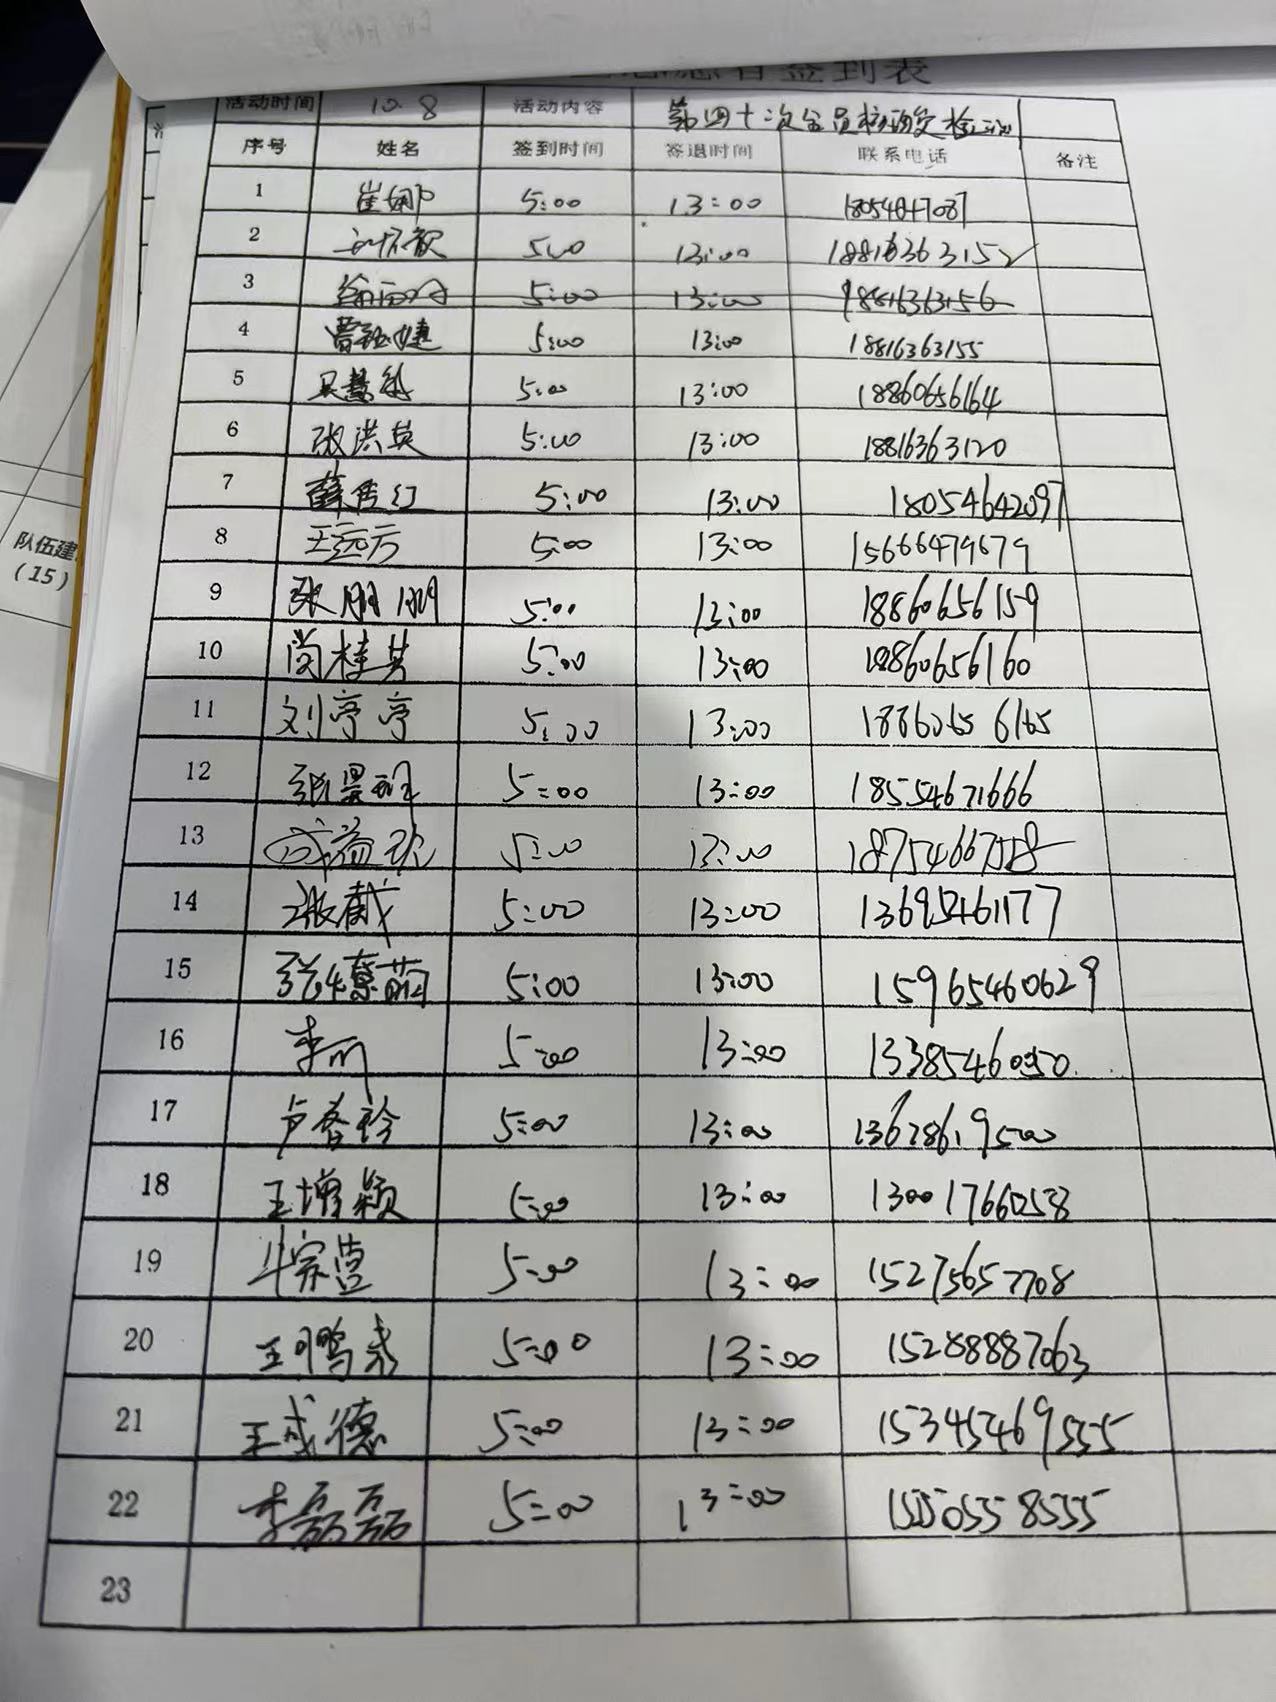 签到表
活动时间 10.8 活动内容 第四十次全员核酸检测
序号 姓名 签到时间 签退时间 联系电话 备注
1 崔娜 5:00 13:00
2 5:00 13:00 18816363152
3 5:00 13:00 18816363156
4 5:00 13:00 18816363155
5 5:00 13:00 18860656164
6 张洪英 5:00 13:00 18816363120
7 薛秀红 5:00 13:00 18054642097
8 王远方 5:00 13:00 15666479679
9 张朋朋 5:00 13:00 18860656159
10 尚桂英 5:00 13:00 18860656160
11 刘亭亭 5:00 13:00 18860656165
12 5:00 13:00 18554671666
13 5:00 13:00 18754667558
14 5:00 13:00 13695461177
15 5:00 13:00 15965460629
16 李丽 5:00 13:00
17 卢春玲 5:00 13:00 13678619500
18 王增颖 5:00 13:00 13001766058
19 5:00 13:00 15275657708
20 5:00 13:00 15288887063
21 王成德 5:00 13:00 15345469555
22 李磊磊 5:00 13:00 15505558555
23
队伍建
(15)